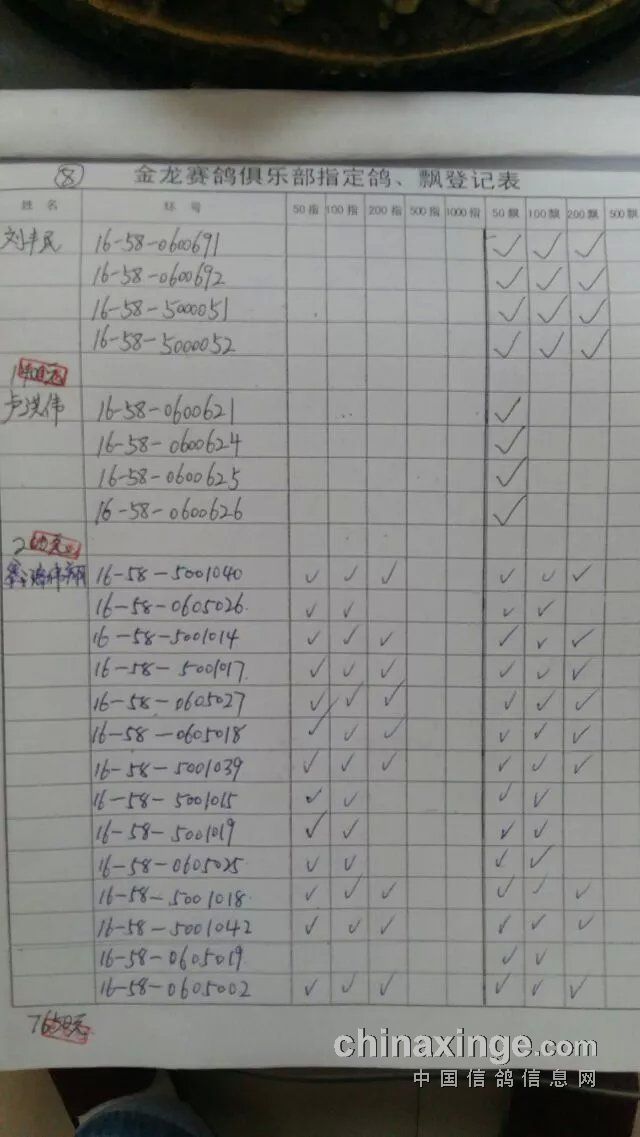 ⑧ 金龙赛鸽俱乐部指定鸽、飘登记表
姓名 环号 50指 100指 200指 500指 1000指 50飘 100飘 200飘 500飘
刘丰民 16-58-0600691 ✓ ✓ ✓
16-58-0600692 ✓ ✓ ✓
16-58-5000051 ✓ ✓ ✓
16-58-5000052 ✓ ✓ ✓
1400元
卢洪伟 16-58-0600621 ✓
16-58-0600624 ✓
16-58-0600625 ✓
16-58-0600626 ✓
200元
16-58-5001040 ✓ ✓ ✓ ✓ ✓ ✓
16-58-0605026 ✓ ✓ ✓ ✓
16-58-5001014 ✓ ✓ ✓ ✓ ✓ ✓
16-58-5001017 ✓ ✓ ✓ ✓ ✓ ✓
16-58-0605027 ✓ ✓ ✓ ✓ ✓ ✓
16-58-0605018 ✓ ✓ ✓ ✓ ✓ ✓
16-58-5001039 ✓ ✓ ✓ ✓ ✓ ✓
16-58-5001015 ✓ ✓ ✓ ✓
16-58-5001019 ✓ ✓ ✓ ✓
16-58-0605025 ✓ ✓ ✓ ✓
16-58-5001018 ✓ ✓ ✓ ✓ ✓ ✓
16-58-5001042 ✓ ✓ ✓ ✓ ✓ ✓
16-58-0605019 ✓ ✓
16-58-0605002 ✓ ✓ ✓ ✓ ✓ ✓
7650元
chinaxinge.com
中国信鸽信息网